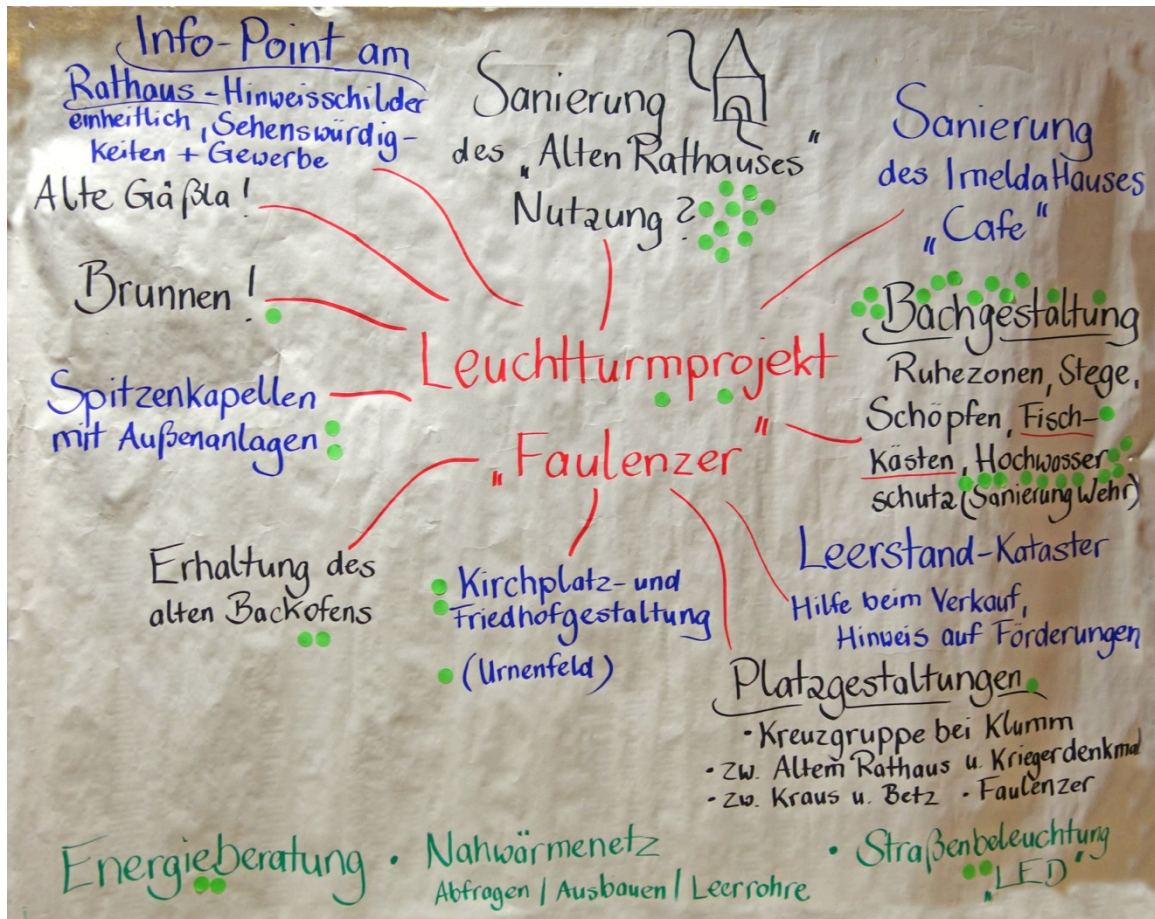 Info-Point am
Rathaus - Hinweisschilder
einheitlich, Sehenswürdig-
keiten + Gewerbe
Alte Gäßla!
Brunnen!
Spitzenkapellen
mit Außenanlagen
Erhaltung des
alten Backofens
Sanierung
des „Alten Rathauses“
Nutzung?
Sanierung
des Imelda Hauses
„Cafe“
Leuchtturmprojekt
„Faulenzer“
Bachgestaltung
Ruhezonen, Stege,
Schöpfen, Fisch-
Kästen, Hochwasser
schutz (Sanierung Wehr)
Kirchplatz- und
Friedhofgestaltung
(Urnenfeld)
Leerstand-Kataster
Hilfe beim Verkauf,
Hinweis auf Förderungen
Platzgestaltungen
· Kreuzgruppe bei Klumm
· zw. Altem Rathaus u. Kriegerdenkmal
· zw. Kraus u. Betz · Faulenzer
Energieberatung · Nahwärmenetz
Abfragen / Ausbauen / Leerrohre
· Straßenbeleuchtung
„LED“